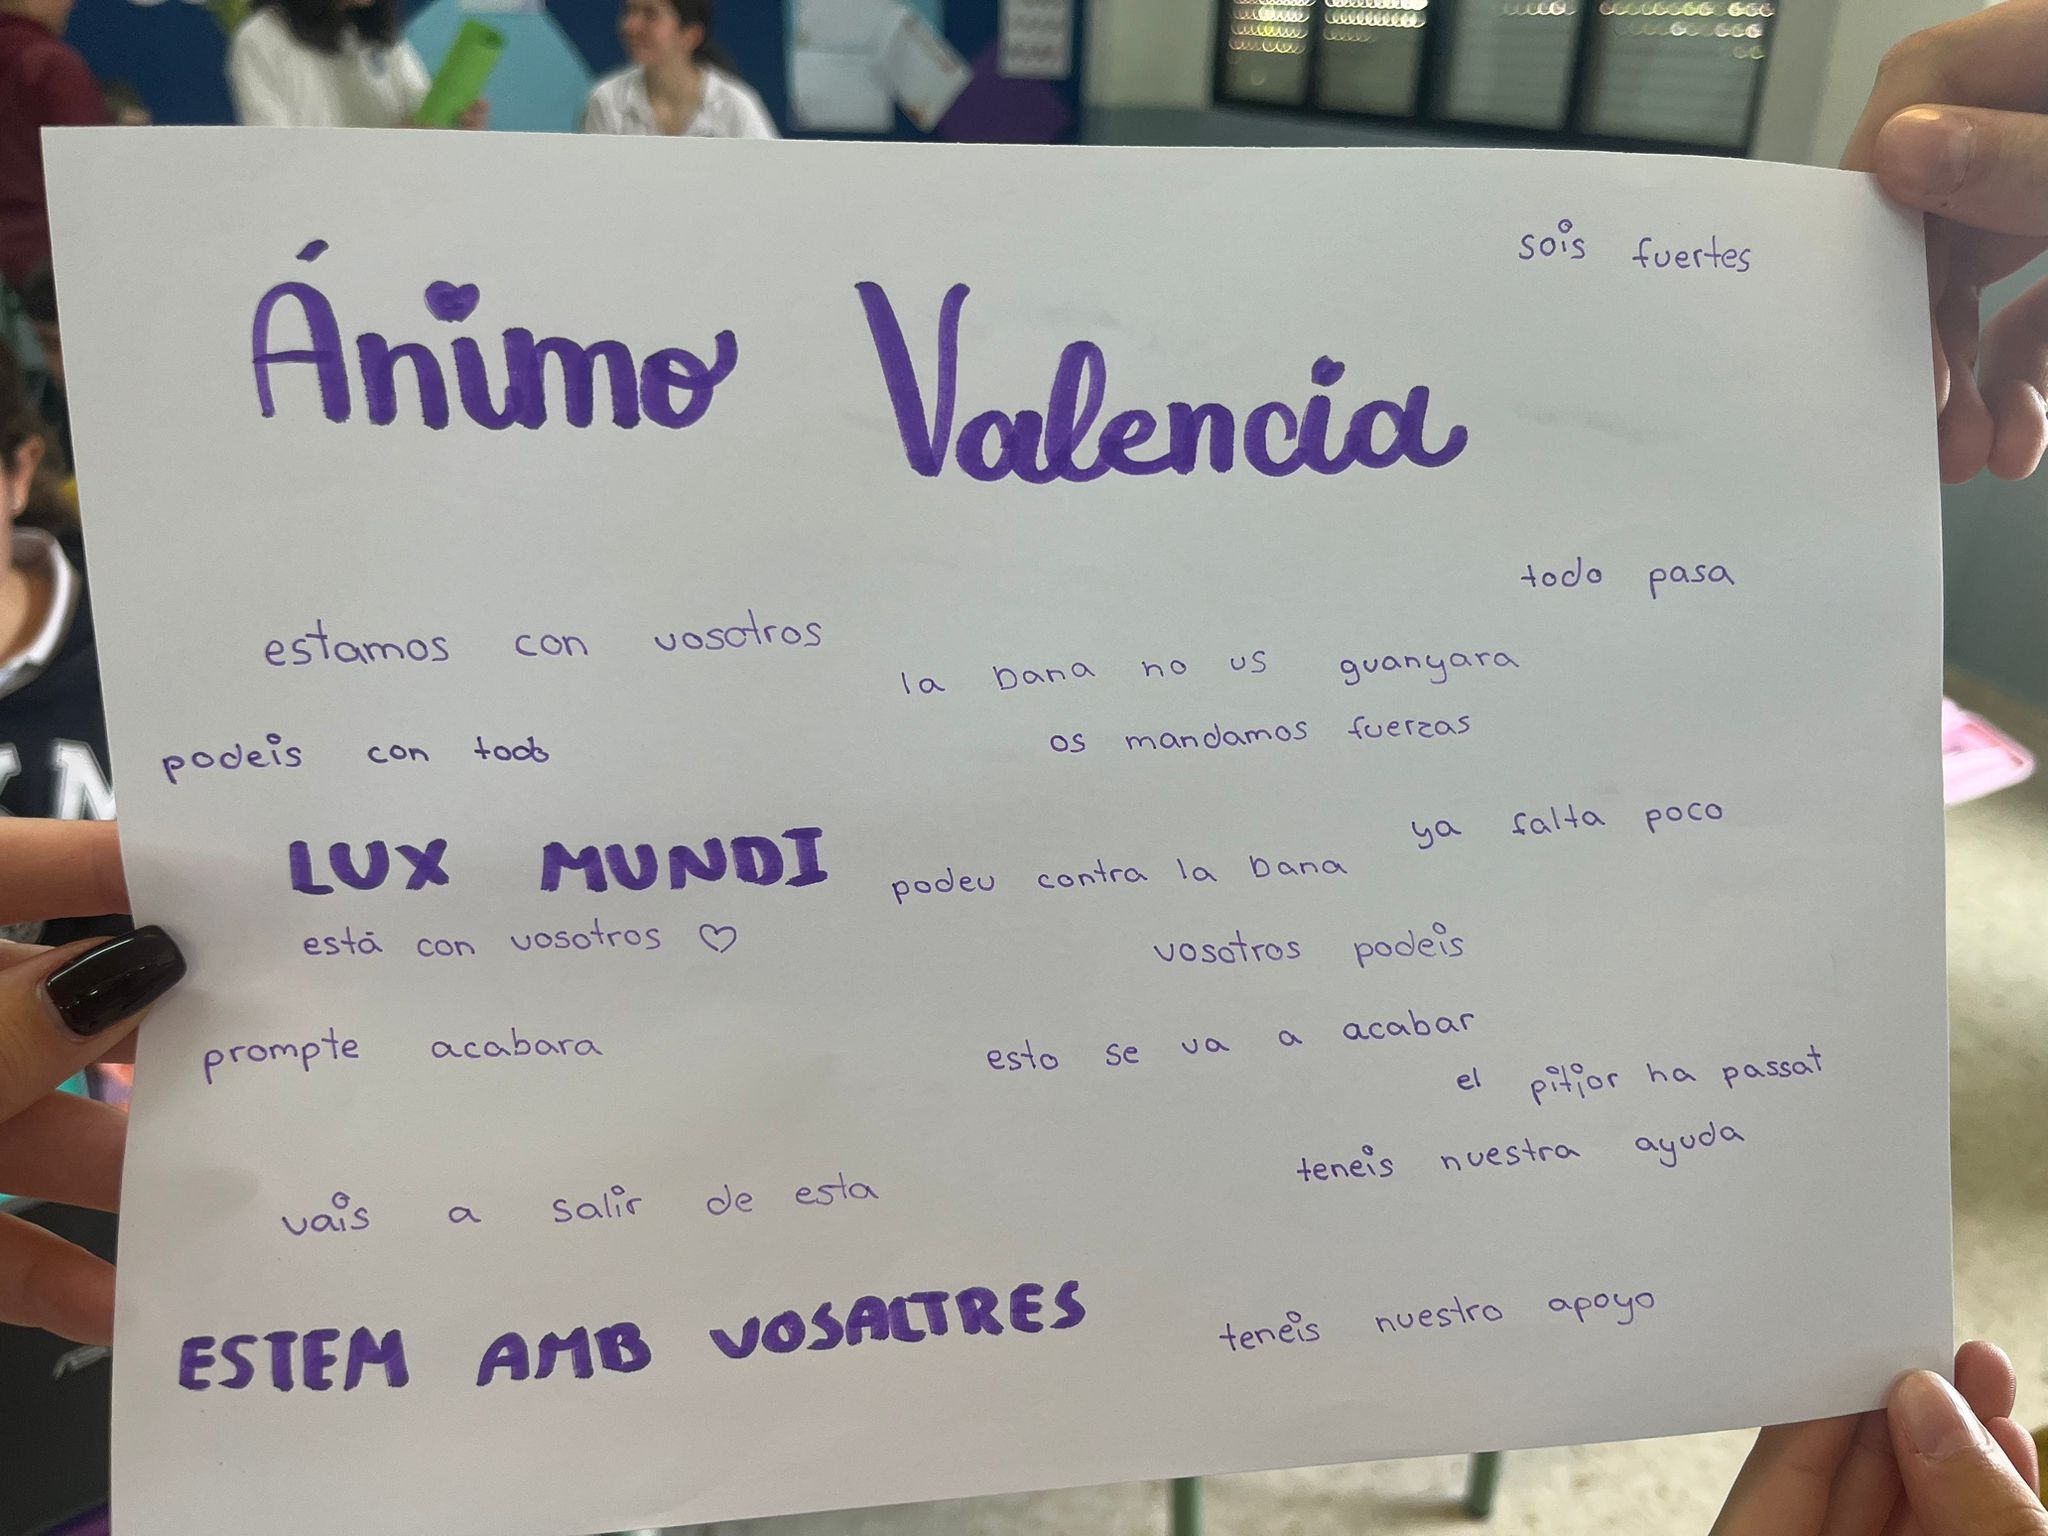 sois fuertes
Ánimo Valencia
todo pasa
estamos con vosotros
la Dana no us guanyara
podeis con todo
os mandamos fuerzas
LUX MUNDI
ya falta poco
podeu contra la Dana
está con vosotros ♡
vosotros podeis
prompte acabara
esto se va a acabar
el pitjor ha passat
teneis nuestra ayuda
vais a salir de esta
ESTEM AMB VOSALTRES
teneis nuestro apoyo